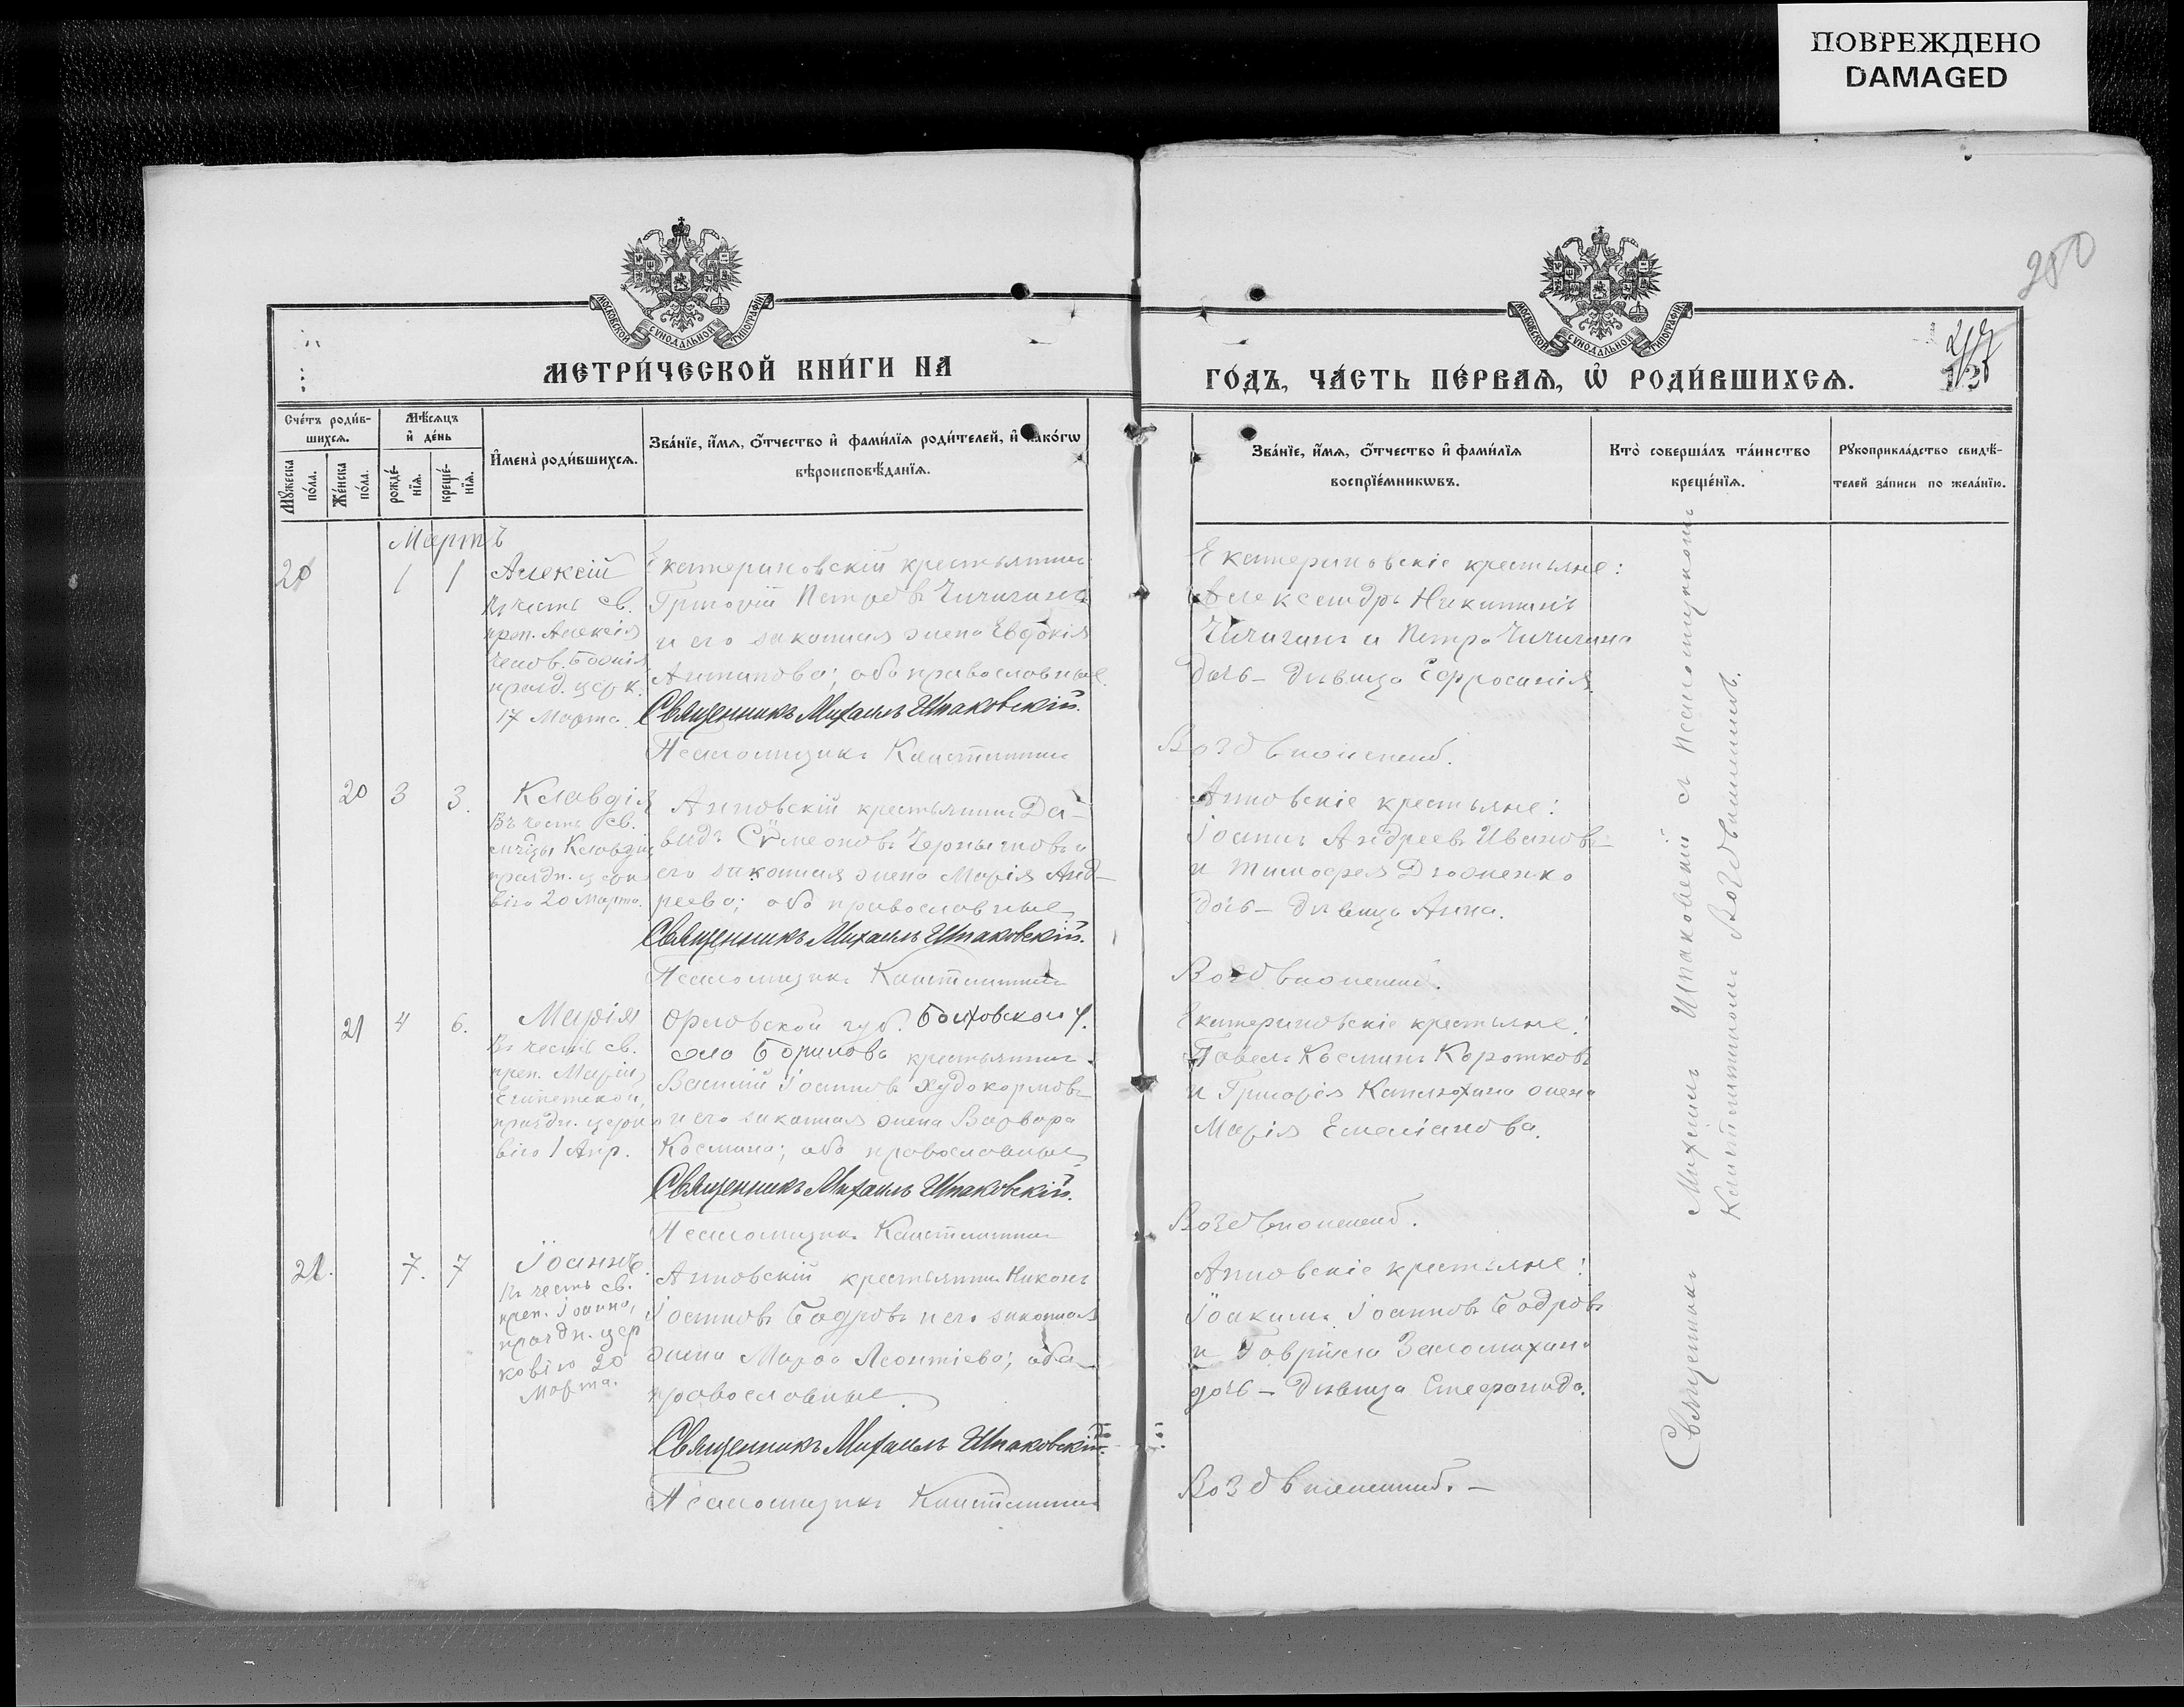 ПОВРЕЖДЕНО
DAMAGED
280
МОСКОВСКОЙ СѴНОДАЛЬНОЙ ТИПОГРАФІИ
МОСКОВСКОЙ СѴНОДАЛЬНОЙ ТИПОГРАФІИ
МЕТРИ́ЧЕСКОЙ КНИ́ГИ НА
ГО́ДЪ, ЧА́СТЬ ПЕ́РВАЯ, Ѡ҆ РОДИ́ВШИХСЯ.
Сче́тъ роди́в-
шихся.
Мѣ́сяцъ
и҆ де́нь
Мꙋ́жеска
по́ла.
Же́нска
по́ла.
рожде́-
нїя.
креще́-
нїя.
И҆мена̀ роди́вшихся.
Зва́нїе, и҆́мя, ѻ҆́тчество и҆ фами́лїя роди́телей, и҆ како́гѡ
вѣроисповѣ́данїя.
Зва́нїе, и҆́мя, ѻ҆́тчество и҆ фами́лїя
воспрїе́мникѡвъ.
Кто̀ соверша́лъ та́инство
креще́нїя.
Рꙋкоприкла́дство свидѣ́-
телей за́писи по жела́нїю.
Мартъ
1 1
Алексій
Въ честь св.
преп. Алексія
Челов. Божія
празд. церк.
17 Марта.
Екатериновскій крестьянинъ
Григорій Петровъ Чичигинъ
и его законная жена Евдокія
Антипова; оба православные.
Священникъ Михаилъ Шпаковскій.
Псаломщикъ Константинъ
Екатериновскіе крестьяне:
Александръ Никитинъ
Чичигинъ и Петра Чичигина
дочь - дѣвица Ефросинія.
Воздвиженскій.
20 3 3.
Клавдія
Въ честь св.
мчцы Клавдіи,
праздн. церко
вію 20 Марта.
Анновскій крестьянинъ Да-
видъ Сѵмеоновъ Чернышовъ и
его законная жена Марія Анд-
реева; оба православные
Священникъ Михаилъ Шпаковскій.
Псаломщикъ Константинъ
Анновскіе крестьяне:
Іоаннъ Андреевъ Ивановъ
и Тимофея
дочь - дѣвица Анна.
Воздвиженскій.
21 4 6.
Марія
Въ честь св.
преп. Маріи
Египетской,
праздн. церко
вію 1 Апр.
Орловской губ. Болховскаго у.
село Борилова крестьянинъ
Василій Іоанновъ Худокормовъ
и его законная жена Варвара
Космина; оба православные
Священникъ Михаилъ Шпаковскій.
Псаломщикъ Константинъ
Екатериновскіе крестьяне:
Павелъ Косминъ Коротковъ
и Григорія Капнюхина жена
Марія Емеліанова.
Воздвиженскій.
7. 7
Іоаннъ.
Въ честь св.
преп. Іоанна,
праздн. цер
ковію 20
Марта.
Анновскій крестьянинъ Никонъ
Іоанновъ Бодровъ и его законная
жена Марфа Леонтіева; оба
православные.
Священникъ Михаилъ Шпаковскій.
Псаломщикъ Константинъ
Анновскіе крестьяне:
Іоакимъ Іоанновъ Бодровъ
и Гавріила Заломахина
дочь - дѣвица Стефанида.
Воздвиженскій. -
Священникъ Михаилъ Шпаковскій съ Псаломщикомъ
Константиномъ Воздвиженскимъ.